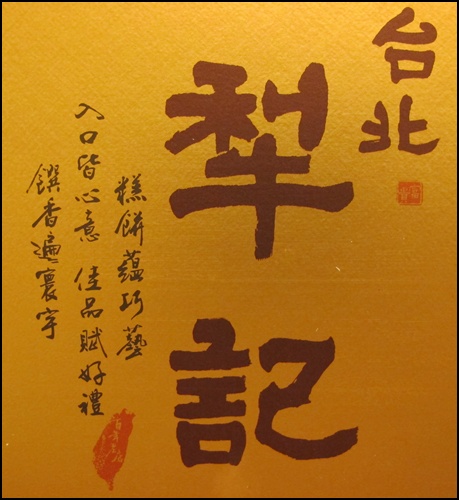 台北
犁記
糕餅蘊巧藝
入口皆心意 佳品賦好禮
饌香遍寰宇